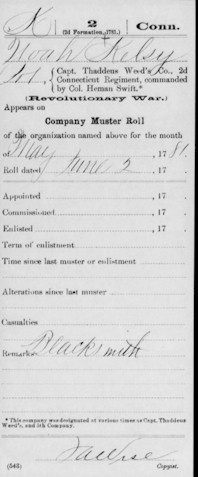 K 2 Conn.
(2d Formation, 1781.)
Noah Kelsy
Capt. Thaddeus Weed's* Co., 2d
Connecticut Regiment, commanded
by Col. Heman Swift.*
(Revolutionary War.)
Appears on
Company Muster Roll
of the organization named above for the month
of May, 1781.
Roll dated June 2, 17
Appointed, 17 .
Commissioned, 17 .
Enlisted, 17 .
Term of enlistment
Time since last muster or enlistment
Alterations since last muster
Casualties
Remarks: Blacksmith
* This company was designated at various times as Capt. Thaddeus
Weed's, and 4th Company.
(543) Copyist.